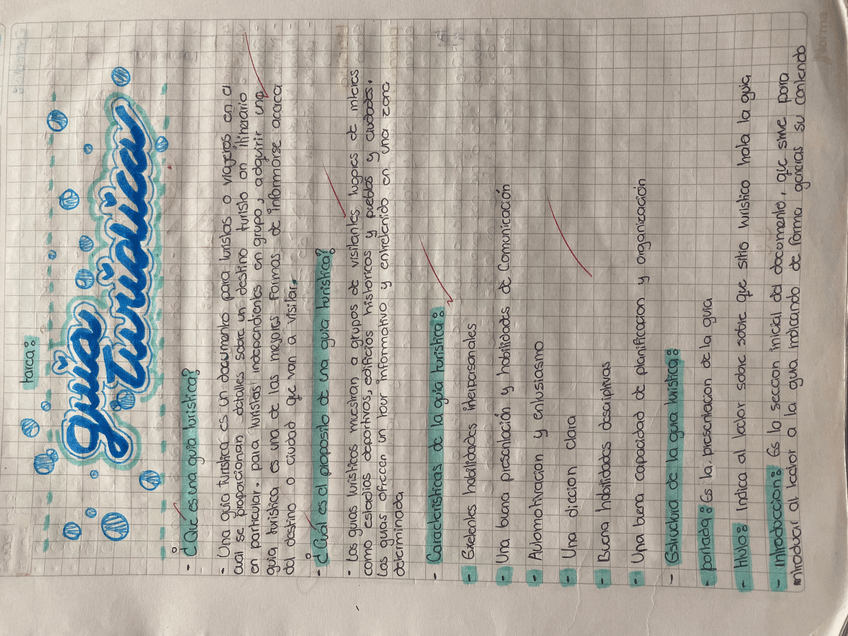 tarea:
guia
Turistica
- ¿Qué es una guia turistica?
- Una guia turistica es un documento para turistas o viajeros en el
cual se proporcionan detalles sobre un destino turisto on itinerario
en particular. para turistas independientes en grupo, adquirir una
guia turistica es una de las mejores formas de informarse acerca
del destino o ciudad que van a visitar.
- ¿Cuál es el proposito de una guia turistica?
- Las guias turisticos muestran a grupos de visitantes lugares de interes
como estadios deportivos, edificios historicos y pueblos y ciudades.
Las guias ofrecen un tour informativo y entretenido en una zona
determinada
- Caracteristicas de la guia turistica:
- Exelentes habilidades interpersonales
- Una buena presentación y habilidades de Comunicación
- Automotivacion y entusiasmo
- Una diccion clara
- Buena habilidades descriptivas
- Una buena capacidad de planificacion y organización
- Estructura de la guia turistica:
- portada: Es la presentacion de la guia
- titulo: Indica al lector sobre sobre que sitio turistico trata la guia
- Introduccion: Es la seccion inicial del documento, que sirve para
introducir al lector a la guia indicando de forma generas su contenido
norma